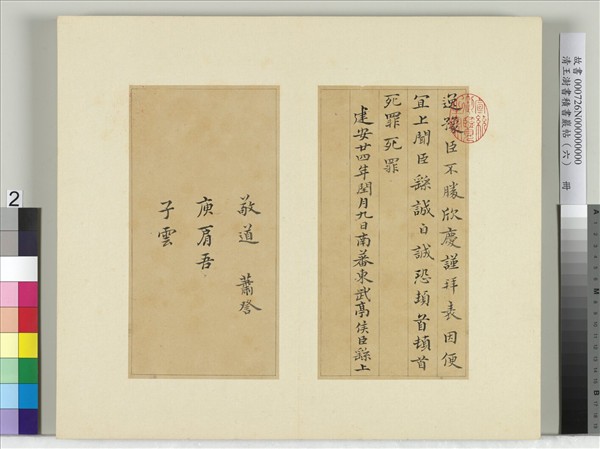 逸豫臣不勝欣慶謹拜表因便
宜上聞臣繇誠白誠恐頓首頓首
死罪死罪
建安廿四年閏月九日南蕃東武亭侯臣繇上
敬道 蕭
庾肩吾
子雲
故書000726N000000000
清王澍書積書巖帖(六) 冊
2